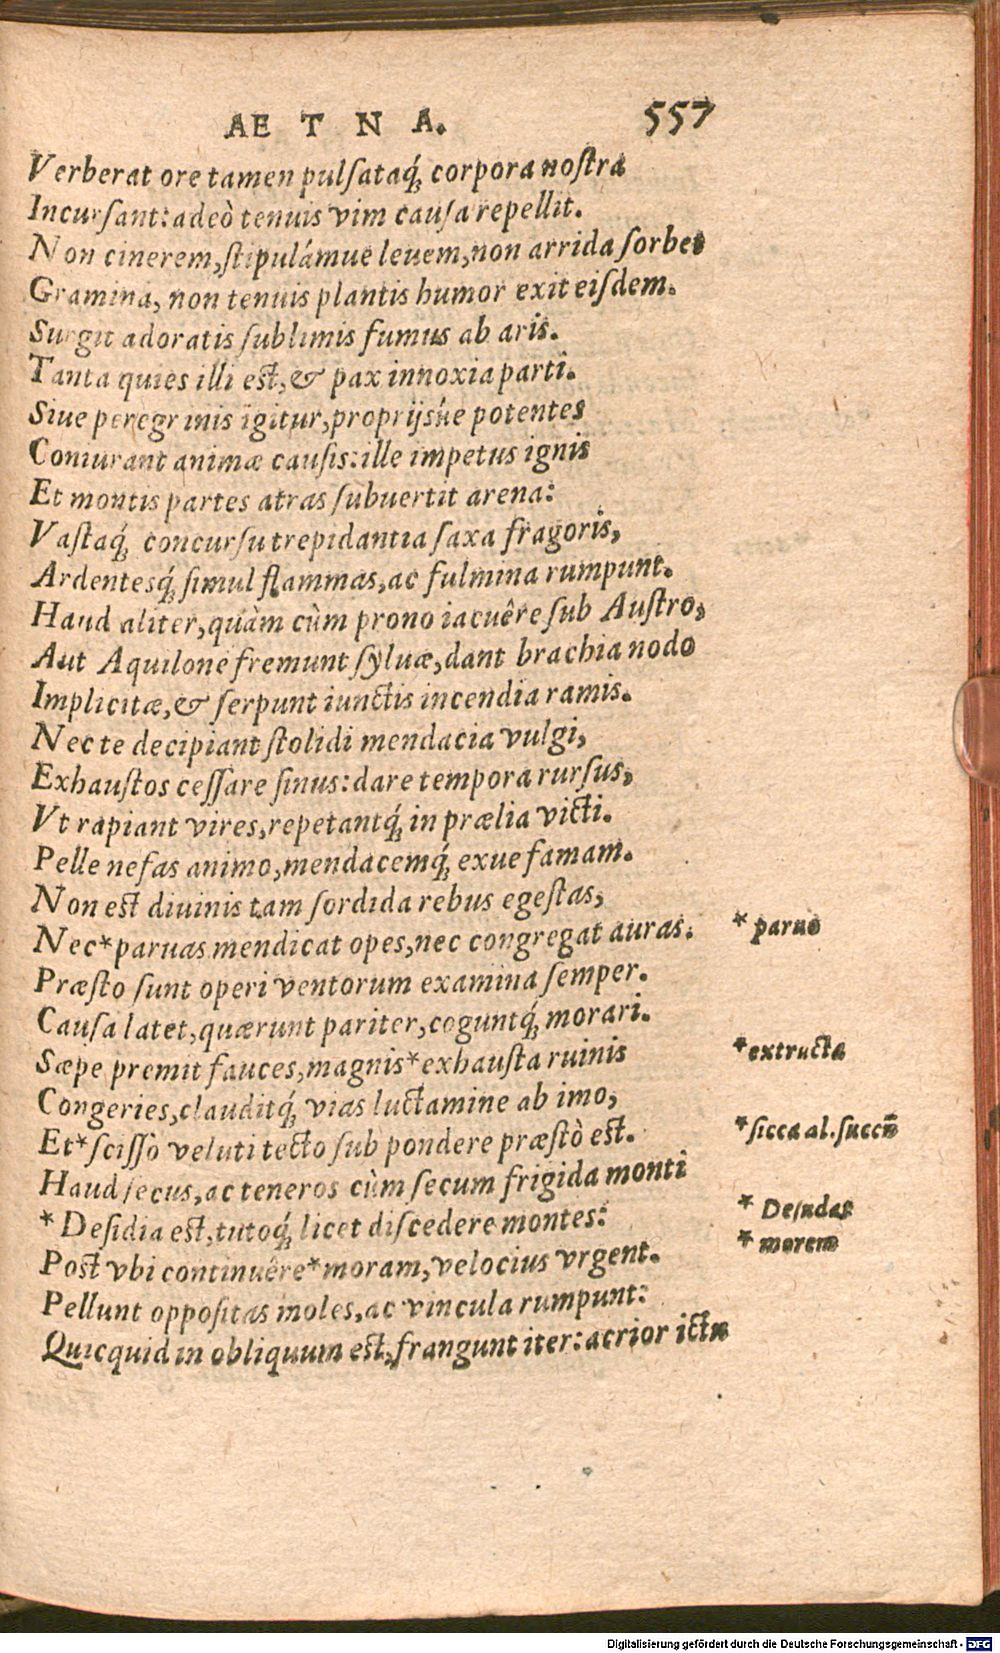 AETNA. 557
Verberat ore tamen pulsataq́; corpora nostra
Incursant: adeò tenuis vim causa repellit.
Non cinerem, stipulámue leuem, non arrida sorbet
Gramina, non tenuis plantis humor exit eisdem.
Surgit adoratis sublimis fumus ab aris.
Tanta quies illi est, & pax innoxia parti.
Siue peregrinis igitur, proprijśue potentes
Coniurant animæ causis: ille impetus ignis
Et montis partes atras subuertit arena:
Vastaq́; concursu trepidantia saxa fragoris,
Ardentesq́; simul flammas, ac fulmina rumpunt.
Haud aliter, quàm cùm prono iacuêre sub Austro,
Aut Aquilone fremunt syluæ, dant brachia nodo
Implicitæ, & serpunt iunctis incendia ramis.
Nec te decipiant stolidi mendacia vulgi,
Exhaustos cessare sinus: dare tempora rursus,
Vt rapiant vires, repetantq́; in prælia victi.
Pelle nefas animo, mendacemq́; exue famam.
Non est diuinis tam sordida rebus egestas,
Nec *paruas mendicat opes, nec congregat auras. * paruo
Præsto sunt operi ventorum examina semper.
Causa latet, quærunt pariter, coguntq́; morari.
Sæpe premit fauces, magnis *exhausta ruinis *extructa
Congeries, clauditq́; vias luctamine ab imo,
Et *scissò veluti tecto sub pondere præstò est. *sicca al. succũ
Haud secus, ac teneros cùm secum frigida monti
*Desidia est, tutoq́; licet discedere montes: * Desudas
Post vbi continuêre *moram, velocius vrgent. * morem
Pellunt oppositas moles, ac vincula rumpunt:
Quicquid in obliquum est, frangunt iter: acrior ictu
Digitalisierung gefördert durch die Deutsche Forschungsgemeinschaft - DFG